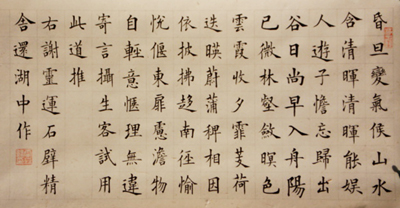 昏旦變氣候山水
含清暉清暉能娛
人遊子憺忘歸出
谷日尚早入舟陽
已微林壑斂暝色
雲霞收夕霏芰荷
迭暎蔚蒲稗相因
依披拂趍南徑愉
悅偃東扉慮澹物
自輕意愜理無違
寄言攝生客試用
此道推
右謝靈運石壁精
舍還湖中作